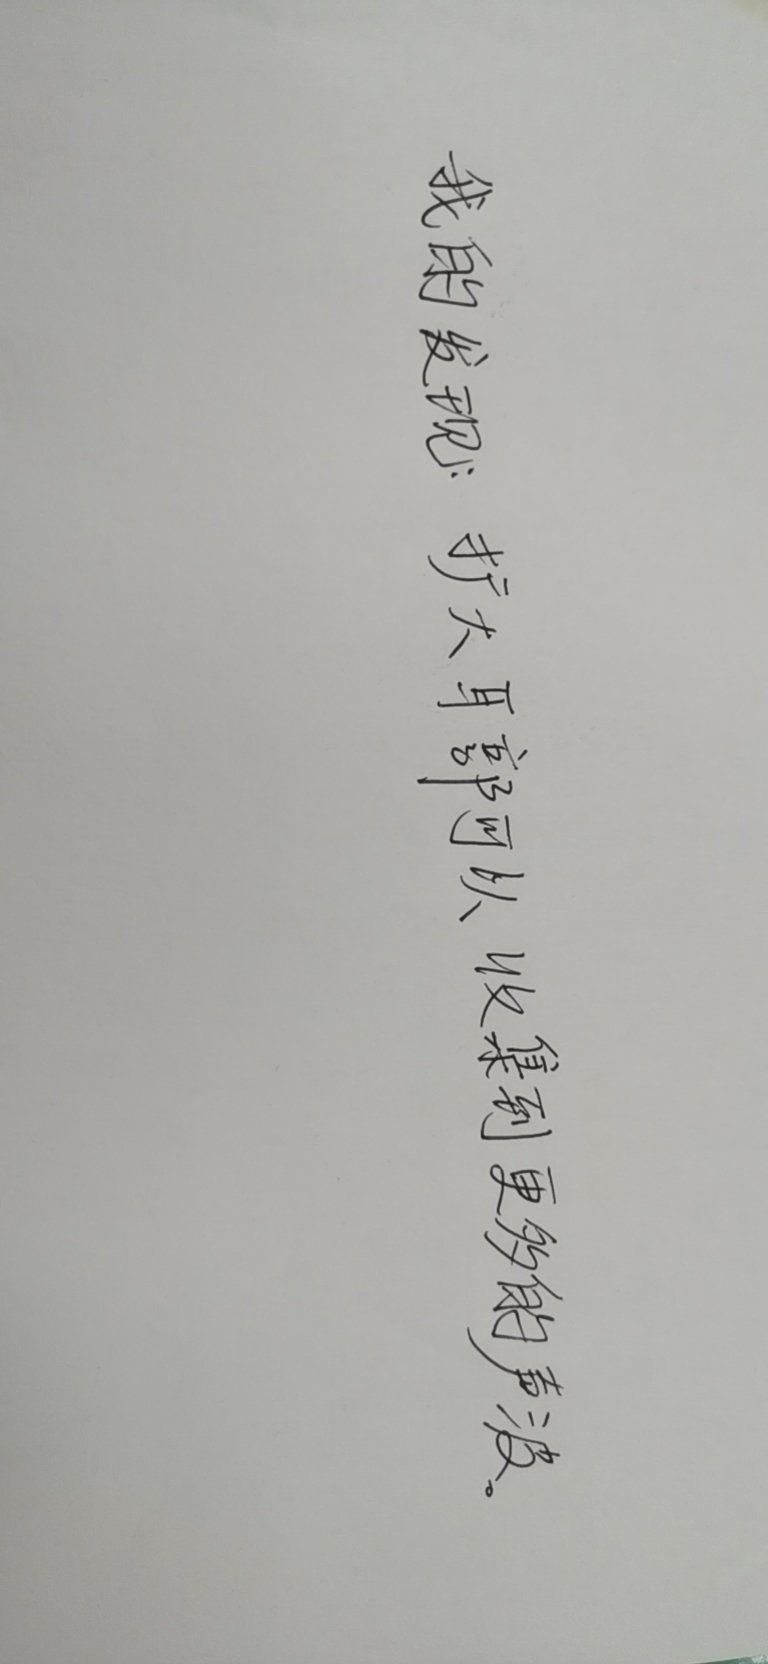 我的发现：扩大耳部可以收集到更多的声波。